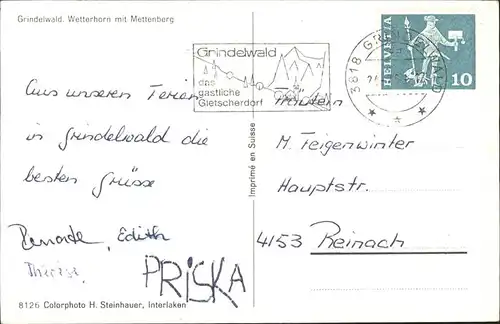 Grindelwald. Wetterhorn mit Mettenberg
Grindelwald
das
gastliche
Gletscherdorf
3818 GRINDELWALD
HELVETIA
10
Aus unseren Ferien
in Grindelwald die
besten Grüsse
Edith
Therese
PRISKA
Imprimé en Suisse
Fräulein
M. Feigenwinter
Hauptstr.
4153 Reinach
8126 Colorphoto H. Steinhauer, Interlaken